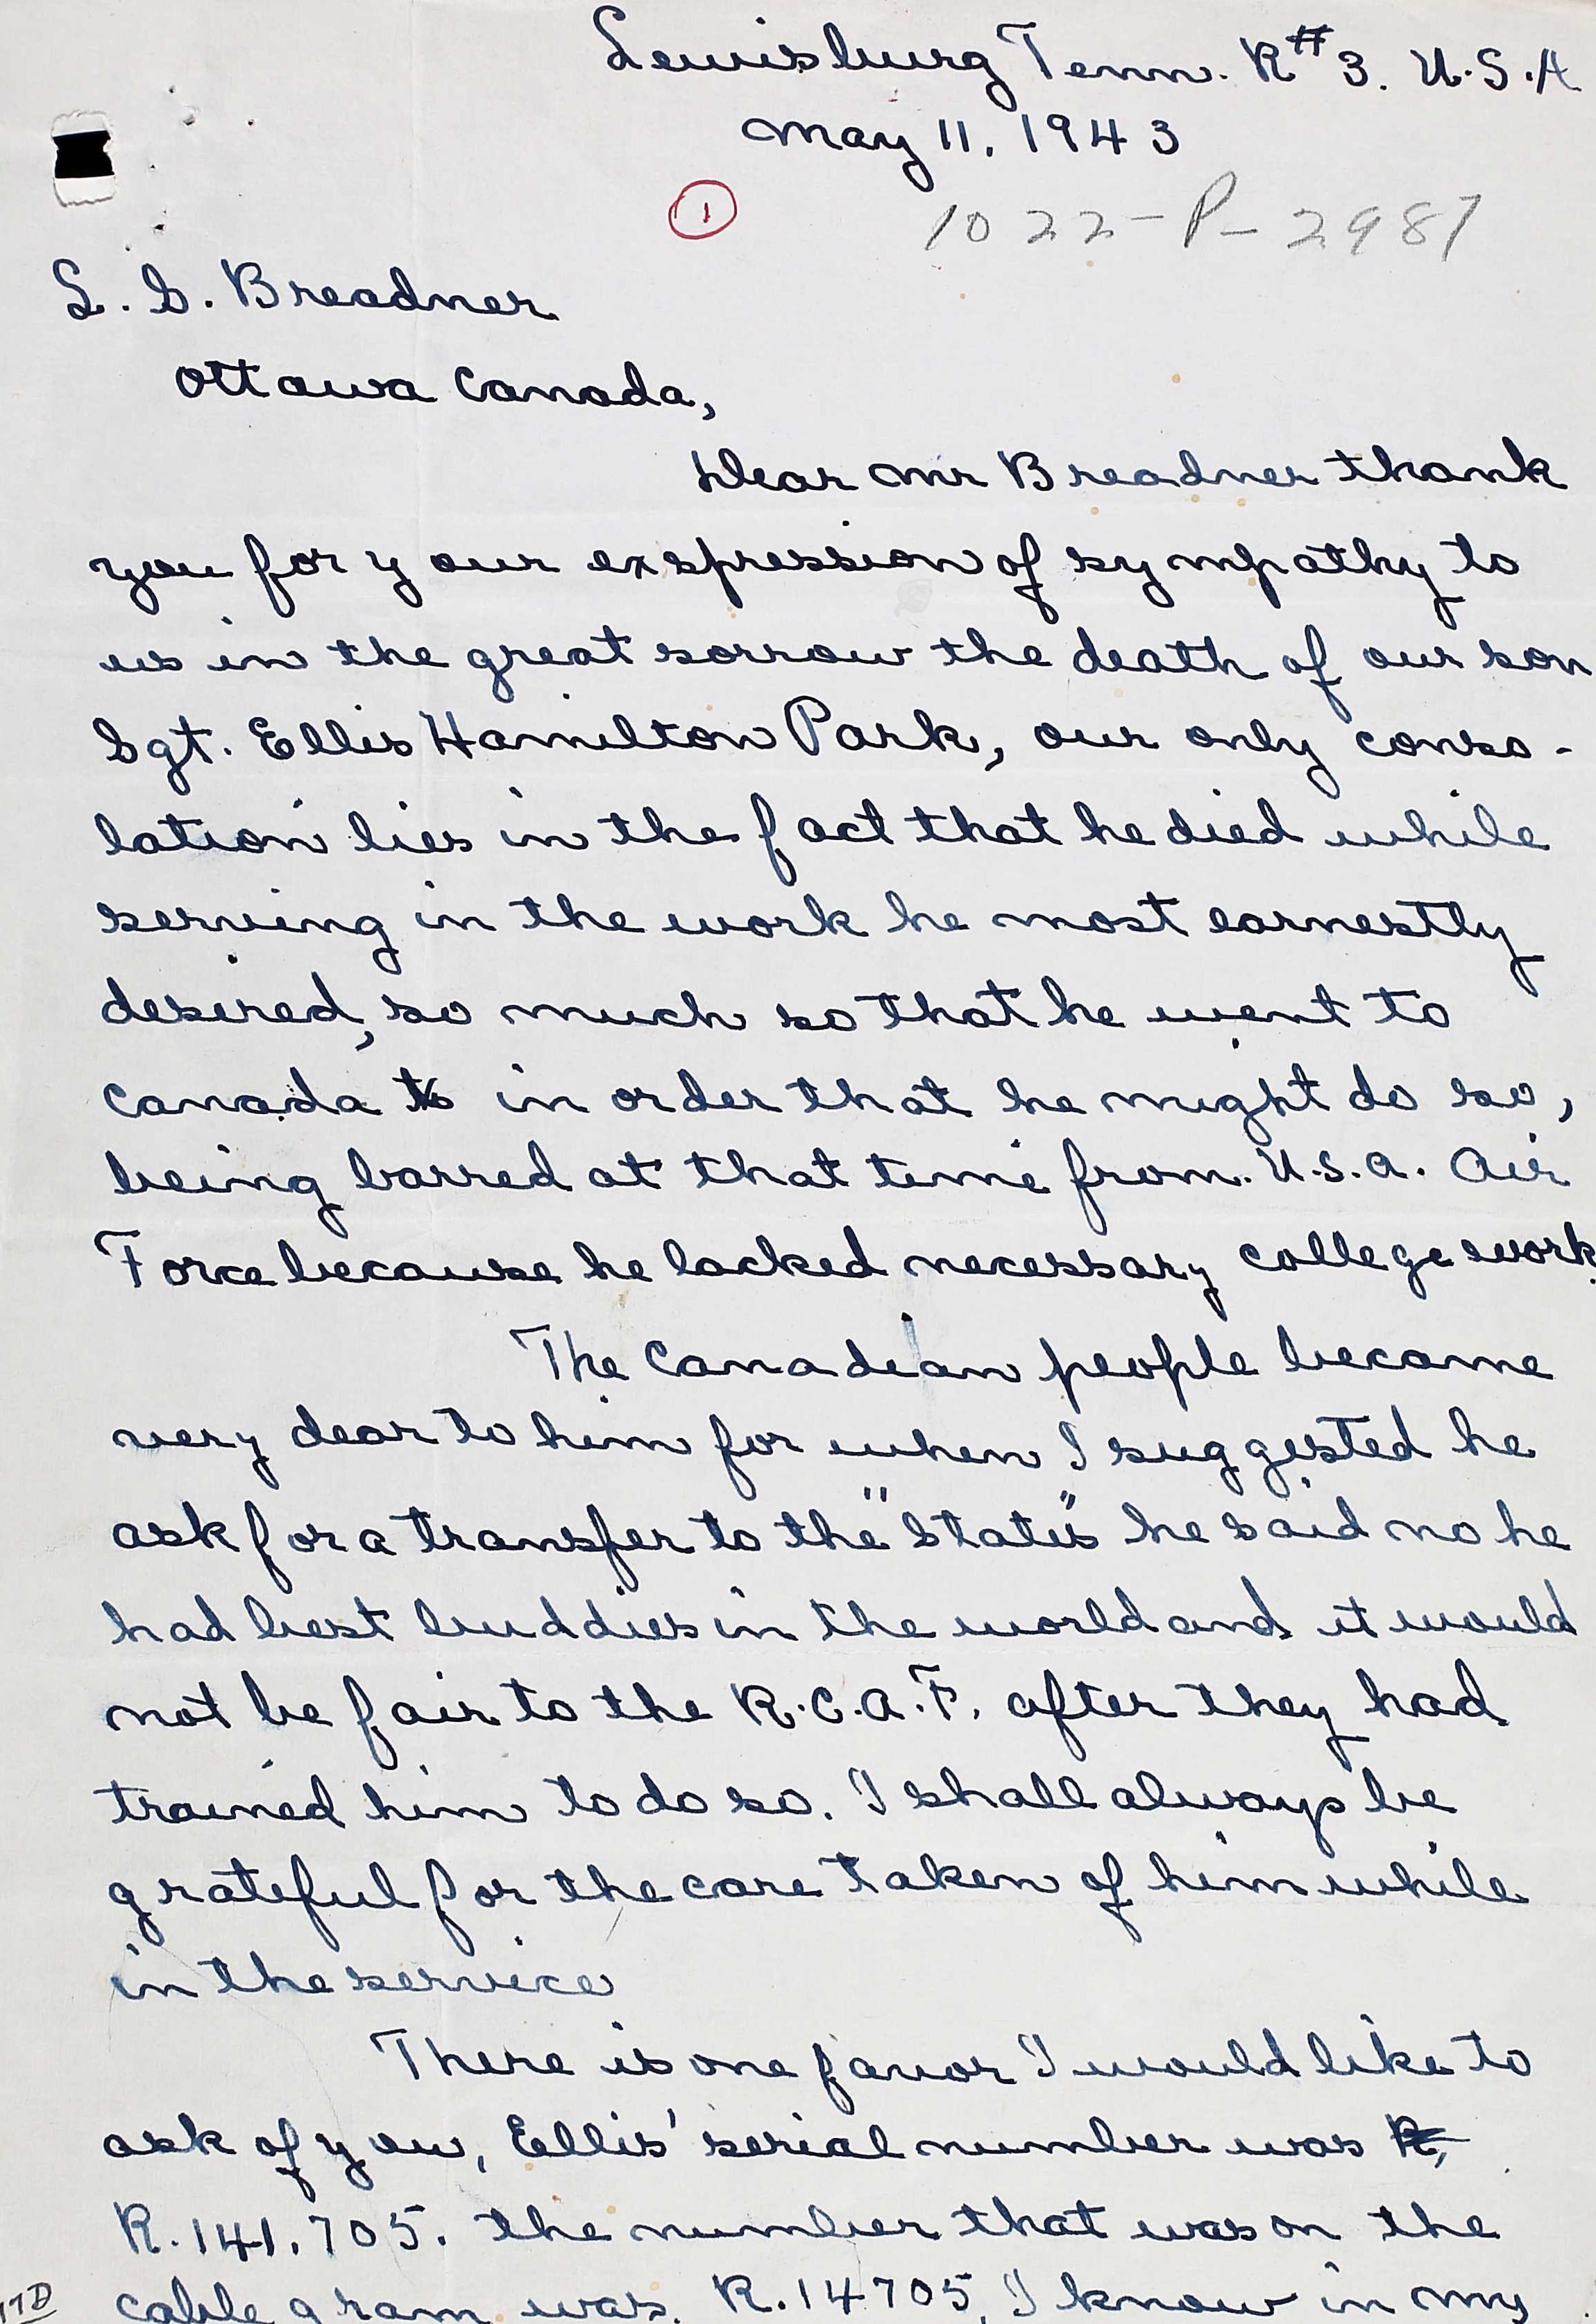 Lewisburg Tenn. R#3. U.S.A
May 11, 1943
1
1022-P-2987
L. S. Breadner
Ottawa Canada,
Dear Mr Breadner thank
you for your exspression of sympathy to
us in the great sorrow the death of our son
Sgt. Ellis Hamilton Park, our only conso-
lation lies in the fact that he died while
serving in the work he most earnestly
desired, so much so that he went to
Canada to in order that he might do so,
being barred at that time from. U.S.A. Air
Force because he lacked necessary college work
The Canadian people became
very dear to him for when I suggested he
ask for a transfer to the "States" he said no he
had best buddies in the world and it would
not be fair to the R.C.A.F. after they had
trained him to do so. I shall always be
grateful for the care taken of him while
in the service
There is one favor I would like to
ask of you, Ellis' serial number was R,
R.141.705. the number that was on the
cable gram was. R.14705, I know in my